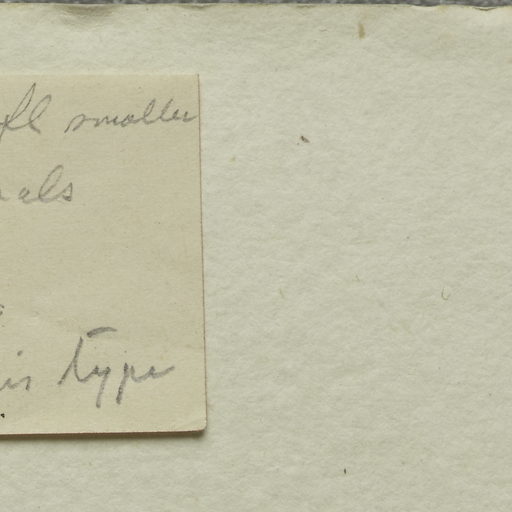 fl smaller
als
is type